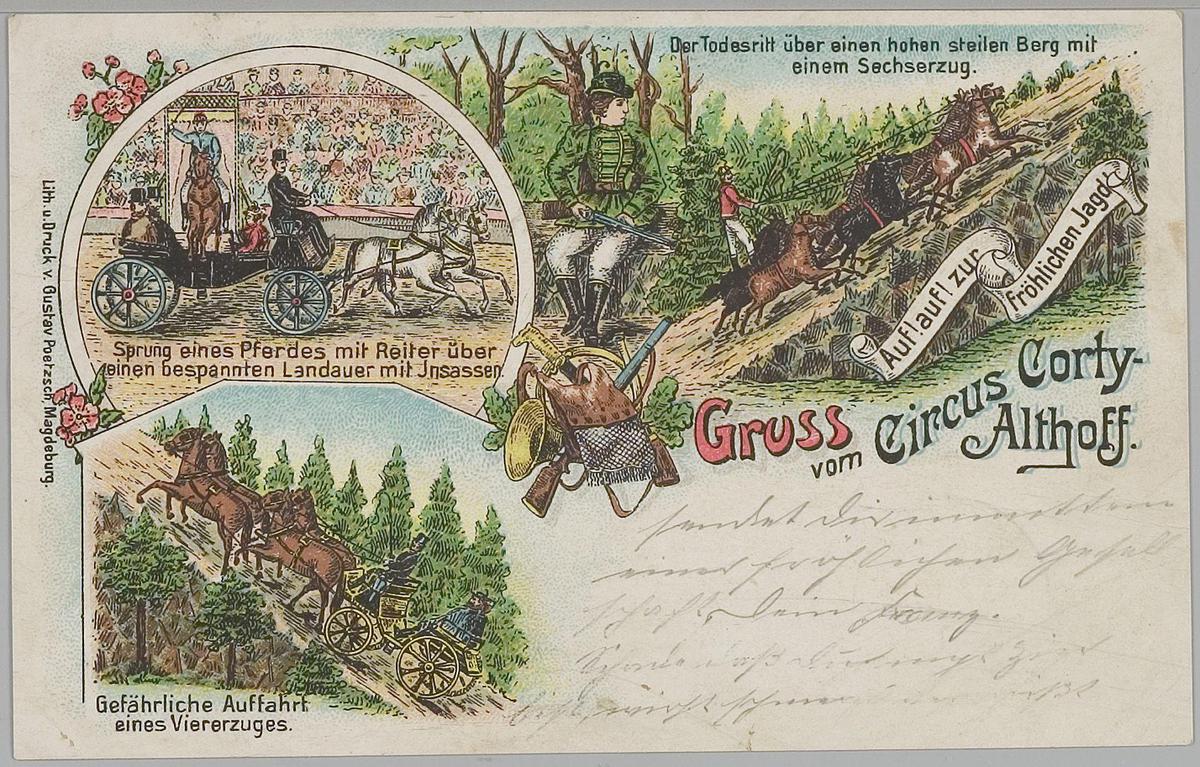 Der Todesritt über einen hohen steilen Berg mit
einem Sechserzug.
Sprung eines Pferdes mit Reiter über
einen bespannten Landauer mit Jnsassen
Auf! auf! zur
fröhlichen Jagd!
Gruss
vom
Circus Corty-
Althoff.
Gefährliche Auffahrt
eines Viererzuges.
Lith. u. Druck v. Gustav Poetzsch Magdeburg.
sendet Dir inmitten
einer fröhlichen Gesell
schaft, Dein Franz.